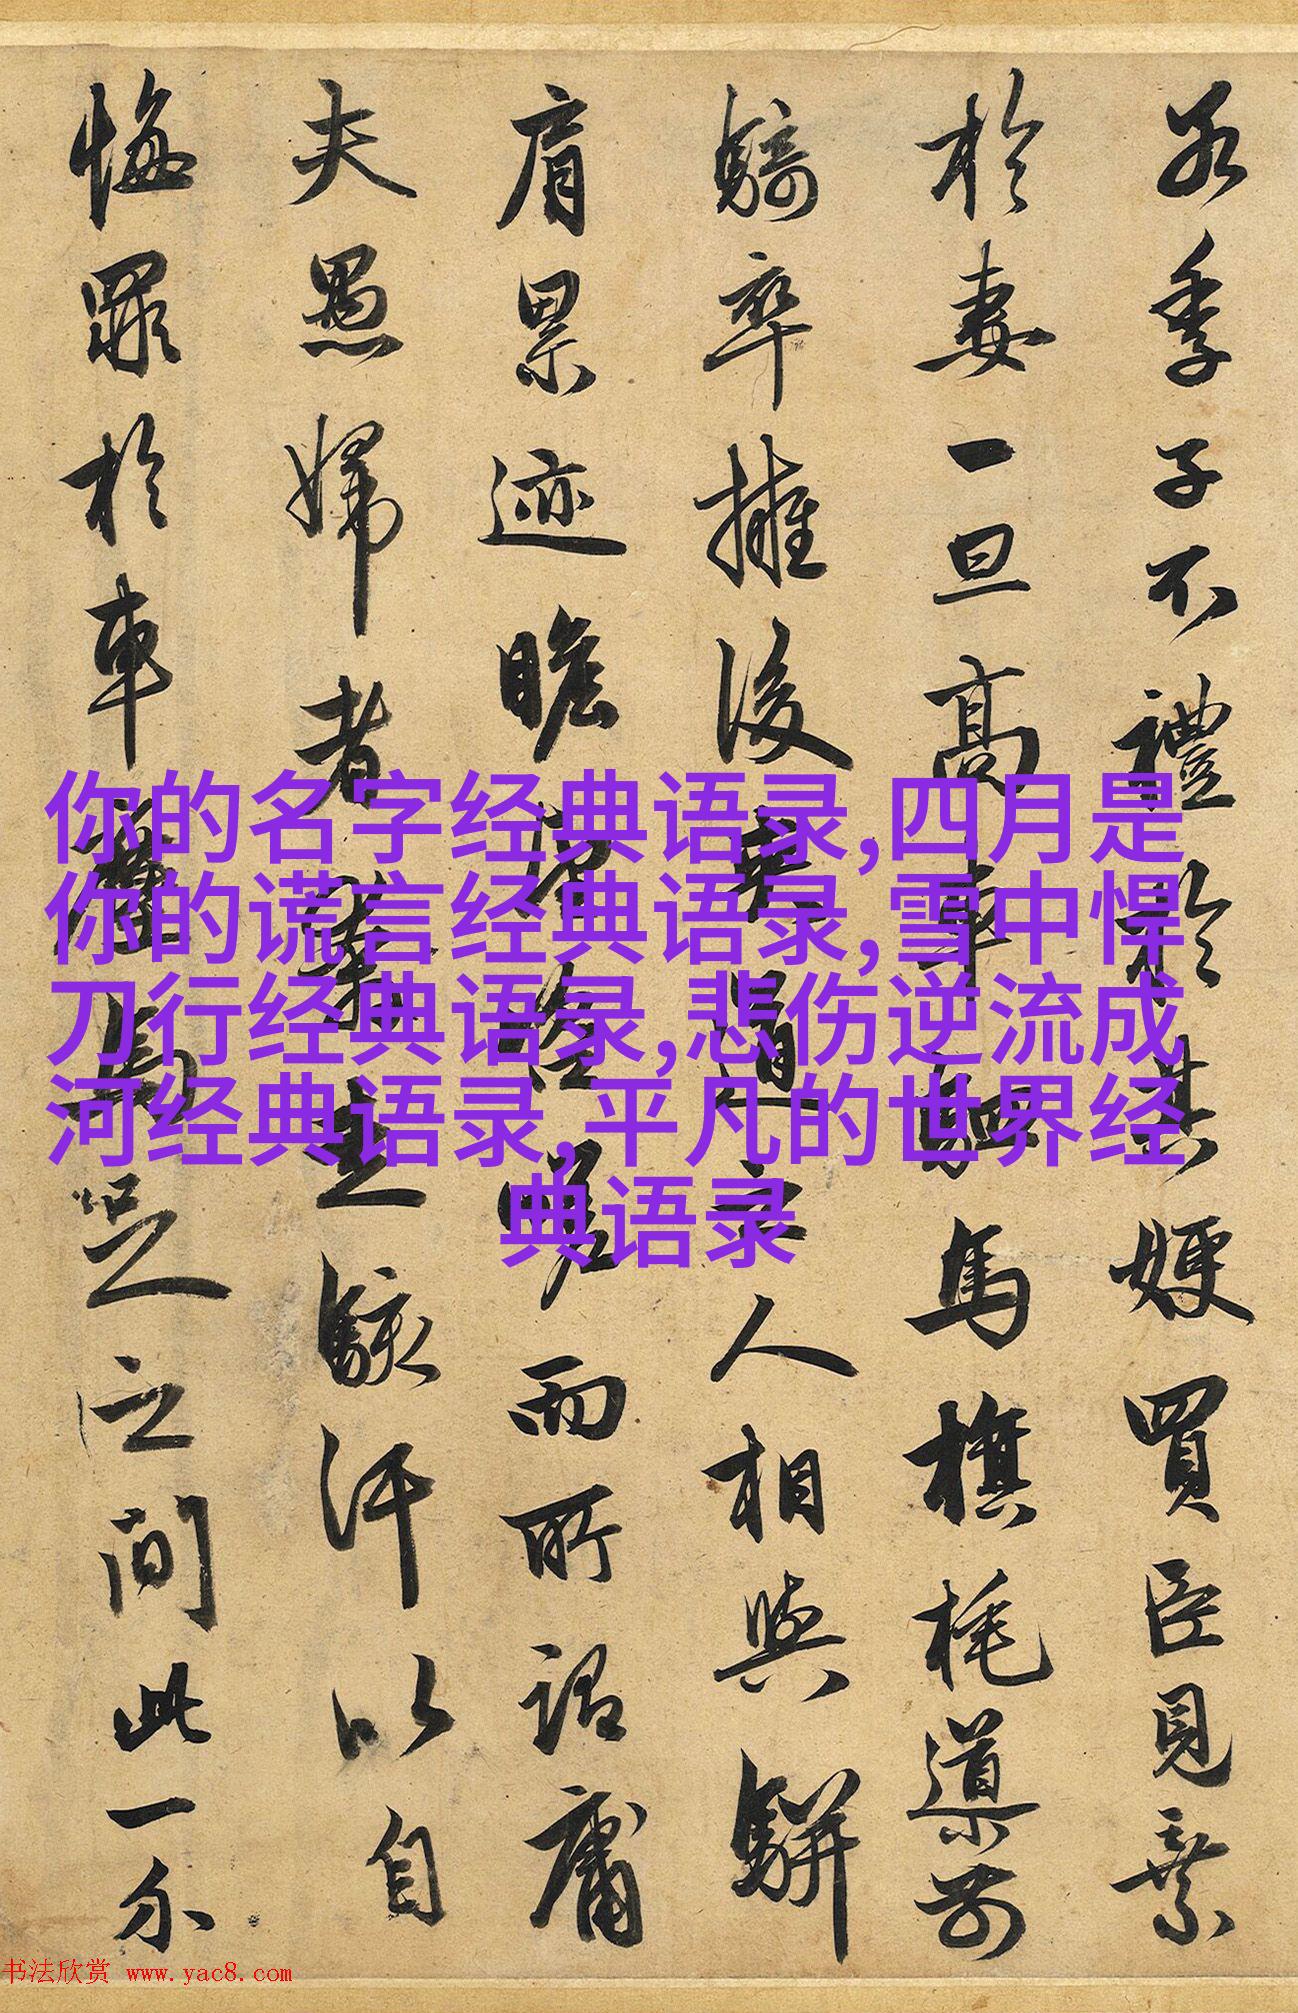 若季子不禮於其嫂買臣見棄
於妻一旦高車駟馬旗旄導前
騎卒擁後夾道之人相與駢
肩累迹瞻望咨嗟而所謂庸
夫愚婦者奔走駭汗以自
悔罪於車塵馬足之間此一介
你的名字经典语录,四月是
你的谎言经典语录,雪中悍
刀行经典语录,悲伤逆流成
河经典语录,平凡的世界经
典语录
书法欣赏 www.yac8.com